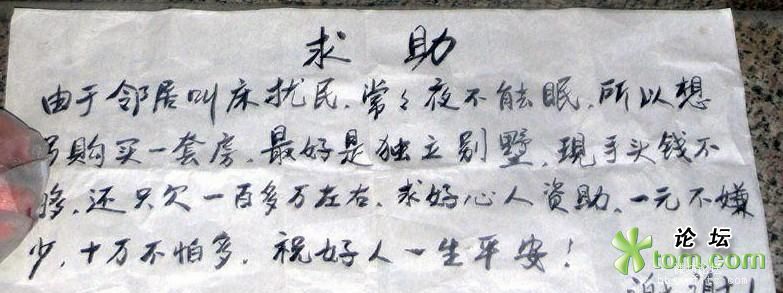 求助
由于邻居叫床扰民、常々夜不能眠、所以想
购买一套房、最好是独立别墅、现手头钱不
够、还只欠一百多万左右、求好心人资助、一元不嫌
少、十万不怕多、祝好人一生平安！
论坛
tom.com